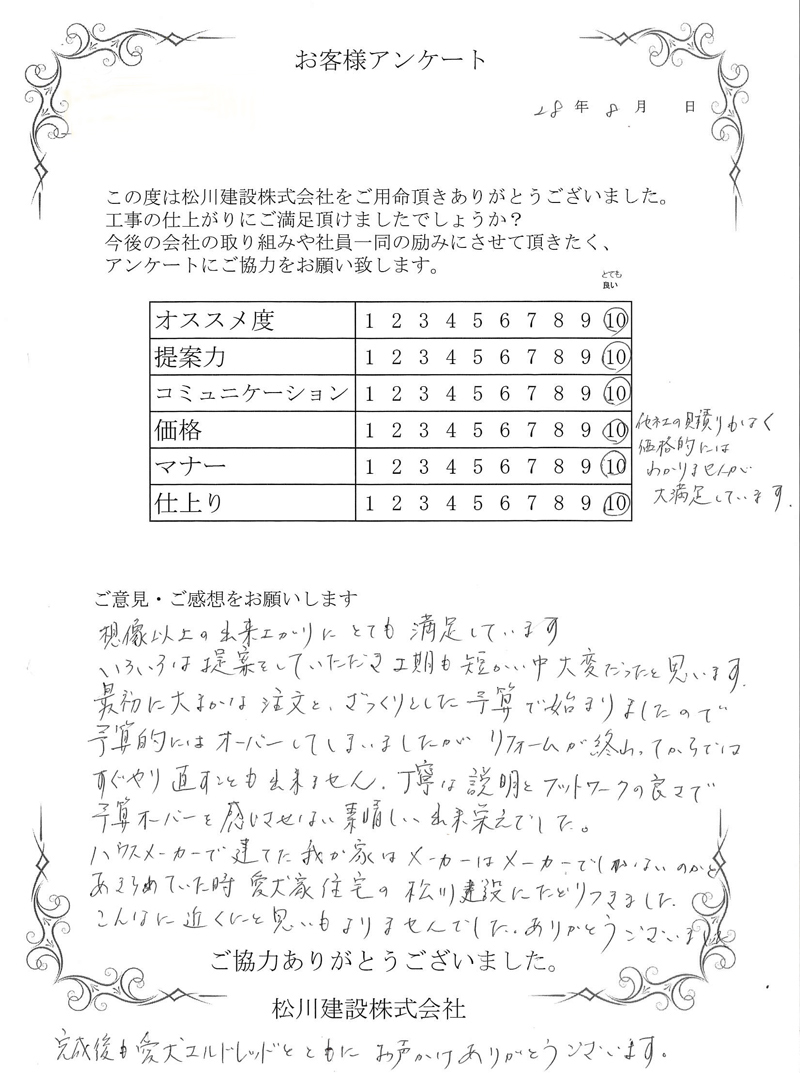 お客様アンケート
28 年 8 月 日
この度は松川建設株式会社をご用命頂きありがとうございました。
工事の仕上がりにご満足頂けましたでしょうか?
今後の会社の取り組みや社員一同の励みにさせて頂きたく、
アンケートにご協力をお願い致します。
とても
良い
オススメ度 1 2 3 4 5 6 7 8 9 10
提案力 1 2 3 4 5 6 7 8 9 10
コミュニケーション 1 2 3 4 5 6 7 8 9 10
価格 1 2 3 4 5 6 7 8 9 10
マナー 1 2 3 4 5 6 7 8 9 10
仕上り 1 2 3 4 5 6 7 8 9 10
他社の見積りもなく
価格的には
わかりませんが
大満足しています.
ご意見・ご感想をお願いします
想像以上の出来上がりにとても満足しています
いろいろな提案をしていただき工期も短かい中大変だったと思います.
最初に大まかな注文と、ざっくりとした予算で始まりましたので
予算的にはオーバーしてしまいましたがリフォームが終わってからでは
すぐやり直すことも出来ません. 丁寧な説明とフットワークの良さで
予算オーバーを感じさせない素晴しい出来栄えでした。
ハウスメーカーで建てた我が家はメーカーはメーカーでしかないのかと
あきらめていた時愛犬家住宅の松川建設にたどりつきました.
こんなに近くにと思いもよりませんでした. ありがとうございました
ご協力ありがとうございました。
松川建設株式会社
完成後も愛犬エルドレッドとともにお声かけありがとうございます。